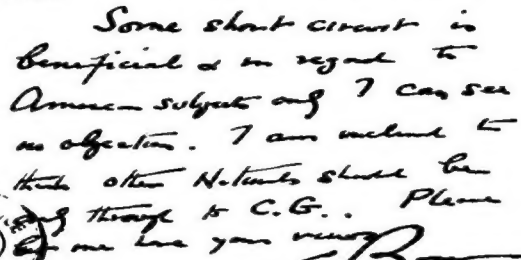 Some short circuit is
beneficial & in regard to
American subjects only I can see
no objection. I am inclined to
think other Nationals should be
through to C.G.. Please
let me have your views